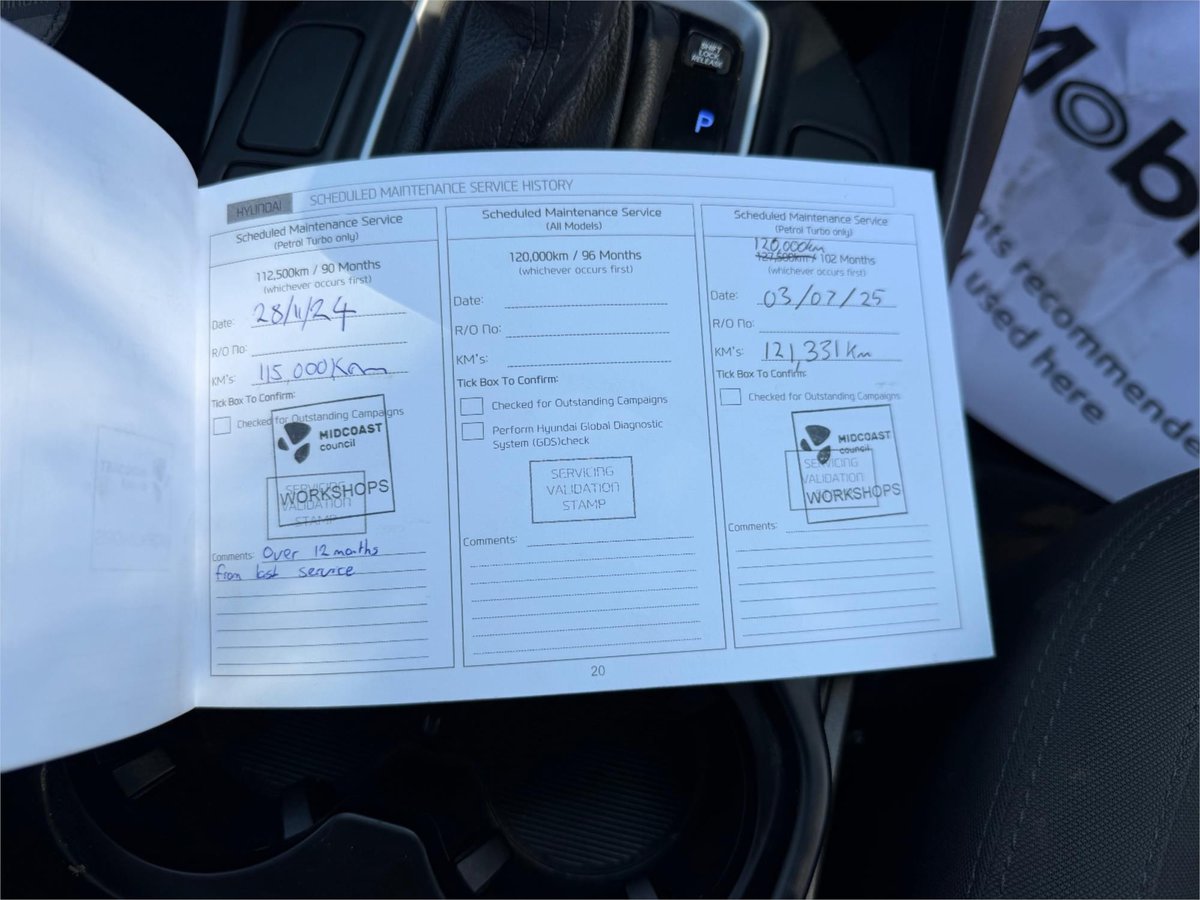 SHIFT
LOCK
RELEASE
P
Mobi
nts recommende
used here
HYUNDAI SCHEDULED MAINTENANCE SERVICE HISTORY
Scheduled Maintenance Service
(Petrol Turbo only)
112,500km / 90 Months
(whichever occurs first)
Date: 28/11/24
R/O No:
KM's: 115,000Km
Tick Box To Confirm:
Checked for Outstanding Campaigns
MIDCOAST
council
WORKSHOPS
SERVICING
VALIDATION
STAMP
Comments: Over 12 months
from last service
Scheduled Maintenance Service
(All Models)
120,000km / 96 Months
(whichever occurs first)
Date:
R/O No:
KM's:
Tick Box To Confirm:
Checked for Outstanding Campaigns
Perform Hyundai Global Diagnostic
System (GDS)check
SERVICING
VALIDATION
STAMP
Comments:
Scheduled Maintenance Service
(Petrol Turbo only)
120,000km
127,500km / 102 Months
(whichever occurs first)
Date: 03/07/25
R/O No:
KM's: 121,331Km
Tick Box To Confirm:
Checked for Outstanding Campaigns
MIDCOAST
council
SERVICING
VALIDATION
WORKSHOPS
Comments:
20